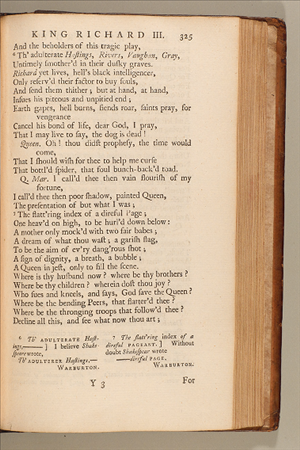 KING RICHARD III. 325
And the beholders of this tragic play,
⁶ Th' adulterate Hastings, Rivers, Vaughan, Gray,
Untimely smother'd in their dusky graves.
Richard yet lives, hell's black intelligencer,
Only reserv'd their factor to buy souls,
And send them thither; but at hand, at hand,
Insues his piteous and unpitied end;
Earth gapes, hell burns, fiends roar, saints pray, for
vengeance
Cancel his bond of life, dear God, I pray,
That I may live to say, the dog is dead!
Queen. Oh! thou didst prophesy, the time would
come,
That I should wish for thee to help me curse
That bottl'd spider, that foul bunch-back'd toad.
Q. Mar. I call'd thee then vain flourish of my
fortune,
I call'd thee then poor shadow, painted Queen,
The presentation of but what I was;
⁷ The flatt'ring index of a direful page;
One heav'd on high, to be hurl'd down below:
A mother only mock'd with two fair babes;
A dream of what thou wast; a garish flag,
To be the aim of ev'ry dang'rous shot;
A sign of dignity, a breath, a bubble;
A Queen in jest, only to fill the scene.
Where is thy husband now? where be thy brothers?
Where be thy children? wherein dost thou joy?
Who sues and kneels, and says, God save the Queen?
Where be the bending Peers, that flatter'd thee?
Where be the thronging troops that follow'd thee?
Decline all this, and see what now thou art;
⁶ Th' ADULTERATE Hast-
ings,——] I believe Shake-
spear wrote,
Th' ADULTERER Hastings.—
WARBURTON.
⁷ The flatt'ring index of a
direful PAGEANT.] Without
doubt Shakespear wrote
——direful PAGE.
WARBURTON.
Y 3 For